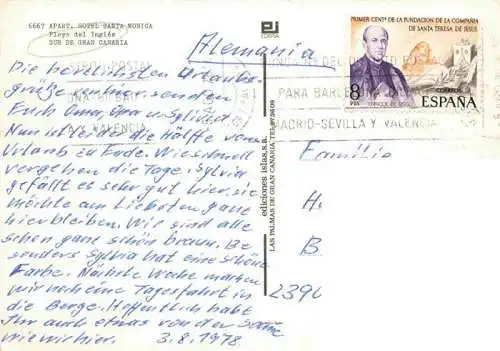 6667 APART. HOTEL SANTA MONICA
Playa del Inglés
SUR DE GRAN CANARIA
EDITA
PRIMER CENTº DE LA FUNDACION DE LA COMPAÑIA
DE SANTA TERESA DE JESUS
8
PTA
ENRIQUE DE OSSO
CORREOS
ESPAÑA
PARA BARCELONA
MADRID-SEVILLA Y VALENCIA
Alemania
Die herzlichsten Urlaubs-
grüße senden
Euch Oma, Opa u. Sylvia
Nun ist wieder die Hälfte vom
Urlaub zu Ende. Wie schnell
vergehen die Tage. Sylvia
gefällt es sehr gut hier, sie
möchte am Liebsten ganz
hierbleiben. Wir sind alle
schon ganz schön braun. Be
sonders Sylvia hat eine schöne
Farbe. Nächste Woche machen
wir noch eine Tagesfahrt in
die Berge. Hoffentlich habt
Ihr auch etwas von der Sonne
wie wir hier. 3.8.1978.
ediciones islas, s.a.
LAS PALMAS DE GRAN CANARIA
Familie
H
B
239